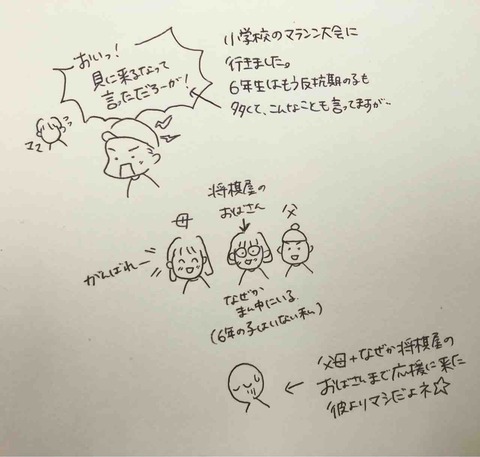 小学校のマラソン大会に
行きました。
6年生はもう反抗期の子も
多くて、こんなことも言ってますが…
おいっ!
見に来るなって
言っただろーが!
ママ
将棋屋の
おばさん
母
父
がんばれー
なぜか
まん中にいる
(6年の子はいない私)
父母+なぜか将棋屋の
おばさんまで応援に来た
彼よりマシだよネ☆